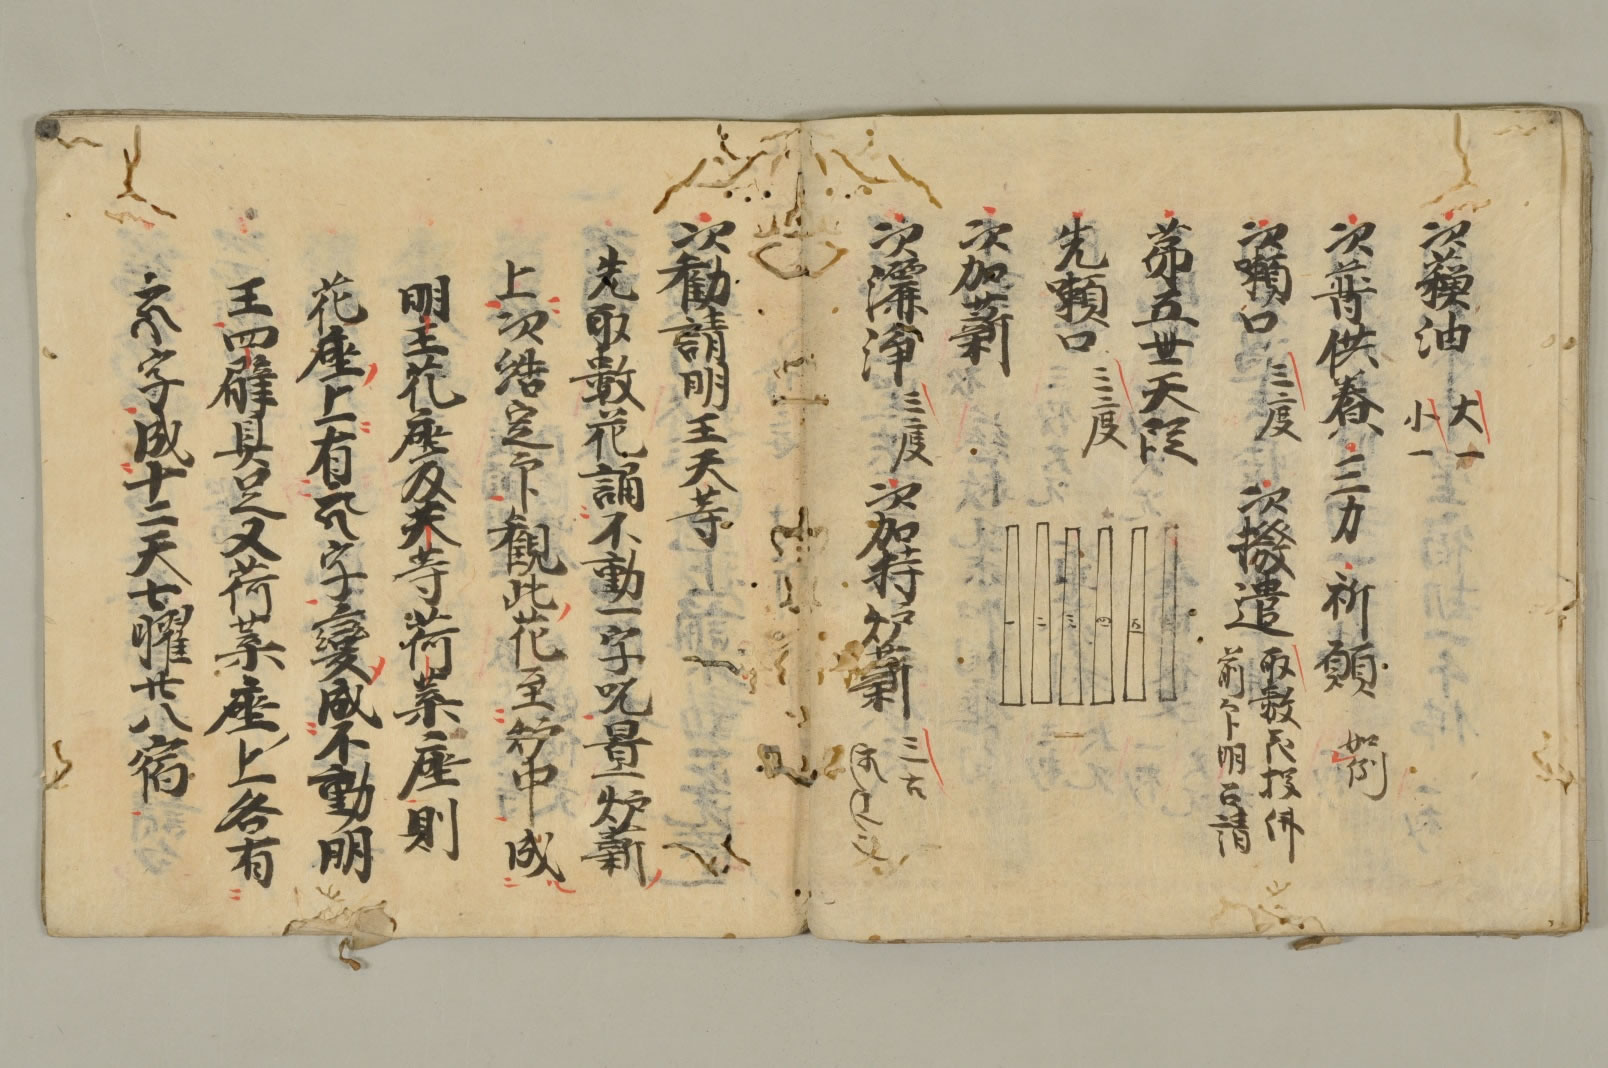 次蘓油 大一 小一
次普供養 三力 祈願 如例
次嗽口 三度 次撥遣 取數花投佛 前卩明召請
苐五世天段
先嗽口 三三度
五
四
三
二
一
次加薪
次灑淨 三度 次加持炉薪 三古
次勧請明王天等
先取數花誦不動一字呪置炉薪
上次結定卩觀此花至炉中成
明王花座及天等荷葉座則
花座上有 字變成不動明
王四臂具足又荷葉座上各有
字成十二天七曜廿八宿